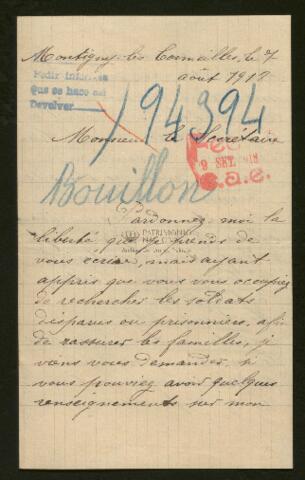 Montigny-les Cormeilles, le 7
août 1918
Pedir informes
que se hace así
Devolver
194394
Monsieur le Secrétaire
9 SET. 918
Bouillon
Pardonnez moi la
liberté que je prends de
vous écrire, mais ayant
PATRIMONIO
appris que vous vous occupiez
de rechercher les soldats
disparus ou prisonniers, afin
de rassurer les familles, je
viens vous demander si
vous pouviez avoir quelques
renseignements sur mon